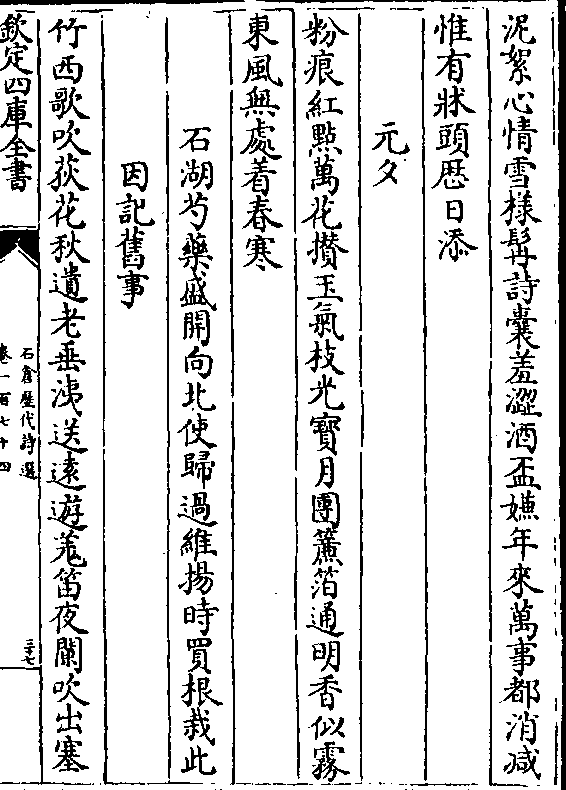 泥絮心情雪様髯詩囊羞澀酒盃嫌年來萬事都消减
惟有牀頭歴日添
元夕
粉痕紅點萬花攅玉氣枝光寶月團簾箔通明香似霧
東風無處着春寒
石湖芍藥盛開向北使歸過維揚時買根栽此
因記舊事
竹西歌吹荻花秋遺老垂洟送逺遊羌笛夜闌吹出塞
欽定四庫全書
石倉歴代詩選
卷一百七十四
三十七